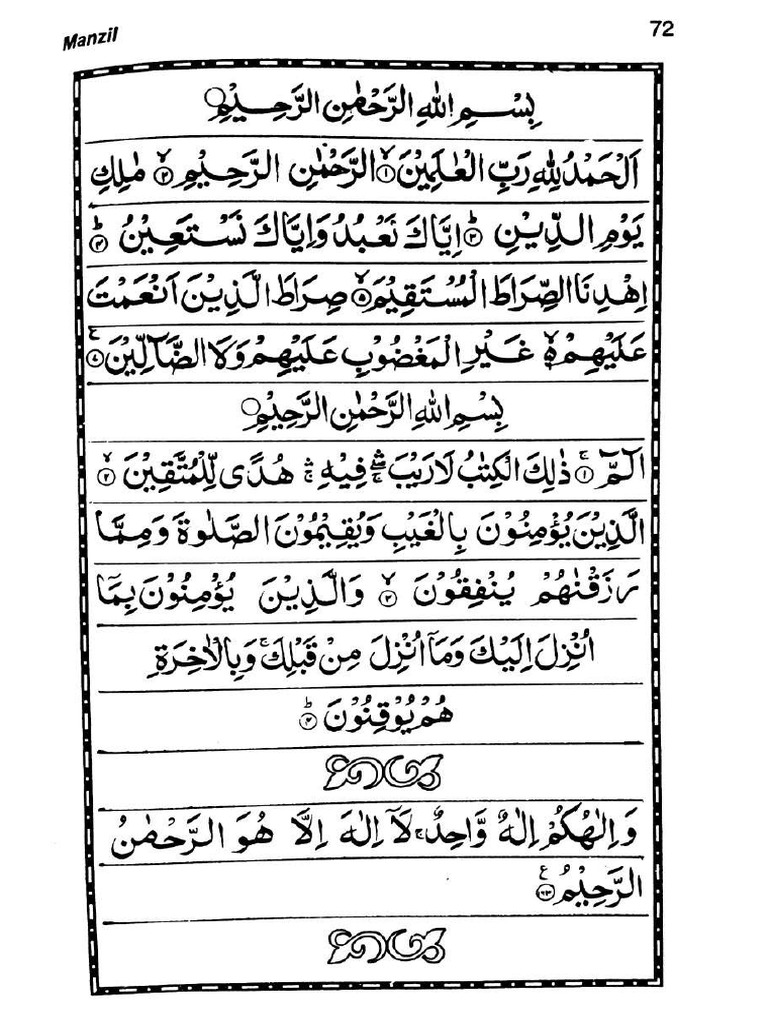 Manzil
72
بِسْمِ اللهِ الرَّحْمٰنِ الرَّحِيْمِ
اَلْحَمْدُ لِلّٰهِ رَبِّ الْعٰلَمِيْنَ ۙ﴿۱﴾ الرَّحْمٰنِ الرَّحِيْمِ ۙ﴿۲﴾ مٰلِكِ
يَوْمِ الدِّيْنِ ؕ﴿۳﴾ اِيَّاكَ نَعْبُدُ وَاِيَّاكَ نَسْتَعِيْنُ ؕ﴿۴﴾
اِهْدِنَا الصِّرَاطَ الْمُسْتَقِيْمَ ۙ﴿۵﴾ صِرَاطَ الَّذِيْنَ اَنْعَمْتَ
عَلَيْهِمْ ۙ غَيْرِ الْمَغْضُوْبِ عَلَيْهِمْ وَلَا الضَّآلِّيْنَ
بِسْمِ اللهِ الرَّحْمٰنِ الرَّحِيْمِ
الٓمّٓ ۚ﴿۱﴾ ذٰلِكَ الْكِتٰبُ لَا رَيْبَ ۛۚ فِيْهِ ۛۚ هُدًى لِّلْمُتَّقِيْنَ ۙ﴿۲﴾
الَّذِيْنَ يُؤْمِنُوْنَ بِالْغَيْبِ وَيُقِيْمُوْنَ الصَّلٰوةَ وَمِمَّا
رَزَقْنٰهُمْ يُنْفِقُوْنَ ۙ﴿۳﴾ وَالَّذِيْنَ يُؤْمِنُوْنَ بِمَآ
اُنْزِلَ اِلَيْكَ وَمَآ اُنْزِلَ مِنْ قَبْلِكَ ۚ وَبِالْاٰخِرَةِ
هُمْ يُوْقِنُوْنَ ؕ﴿۴﴾
وَاِلٰهُكُمْ اِلٰهٌ وَّاحِدٌ ۚ لَآ اِلٰهَ اِلَّا هُوَ الرَّحْمٰنُ
الرَّحِيْمُ